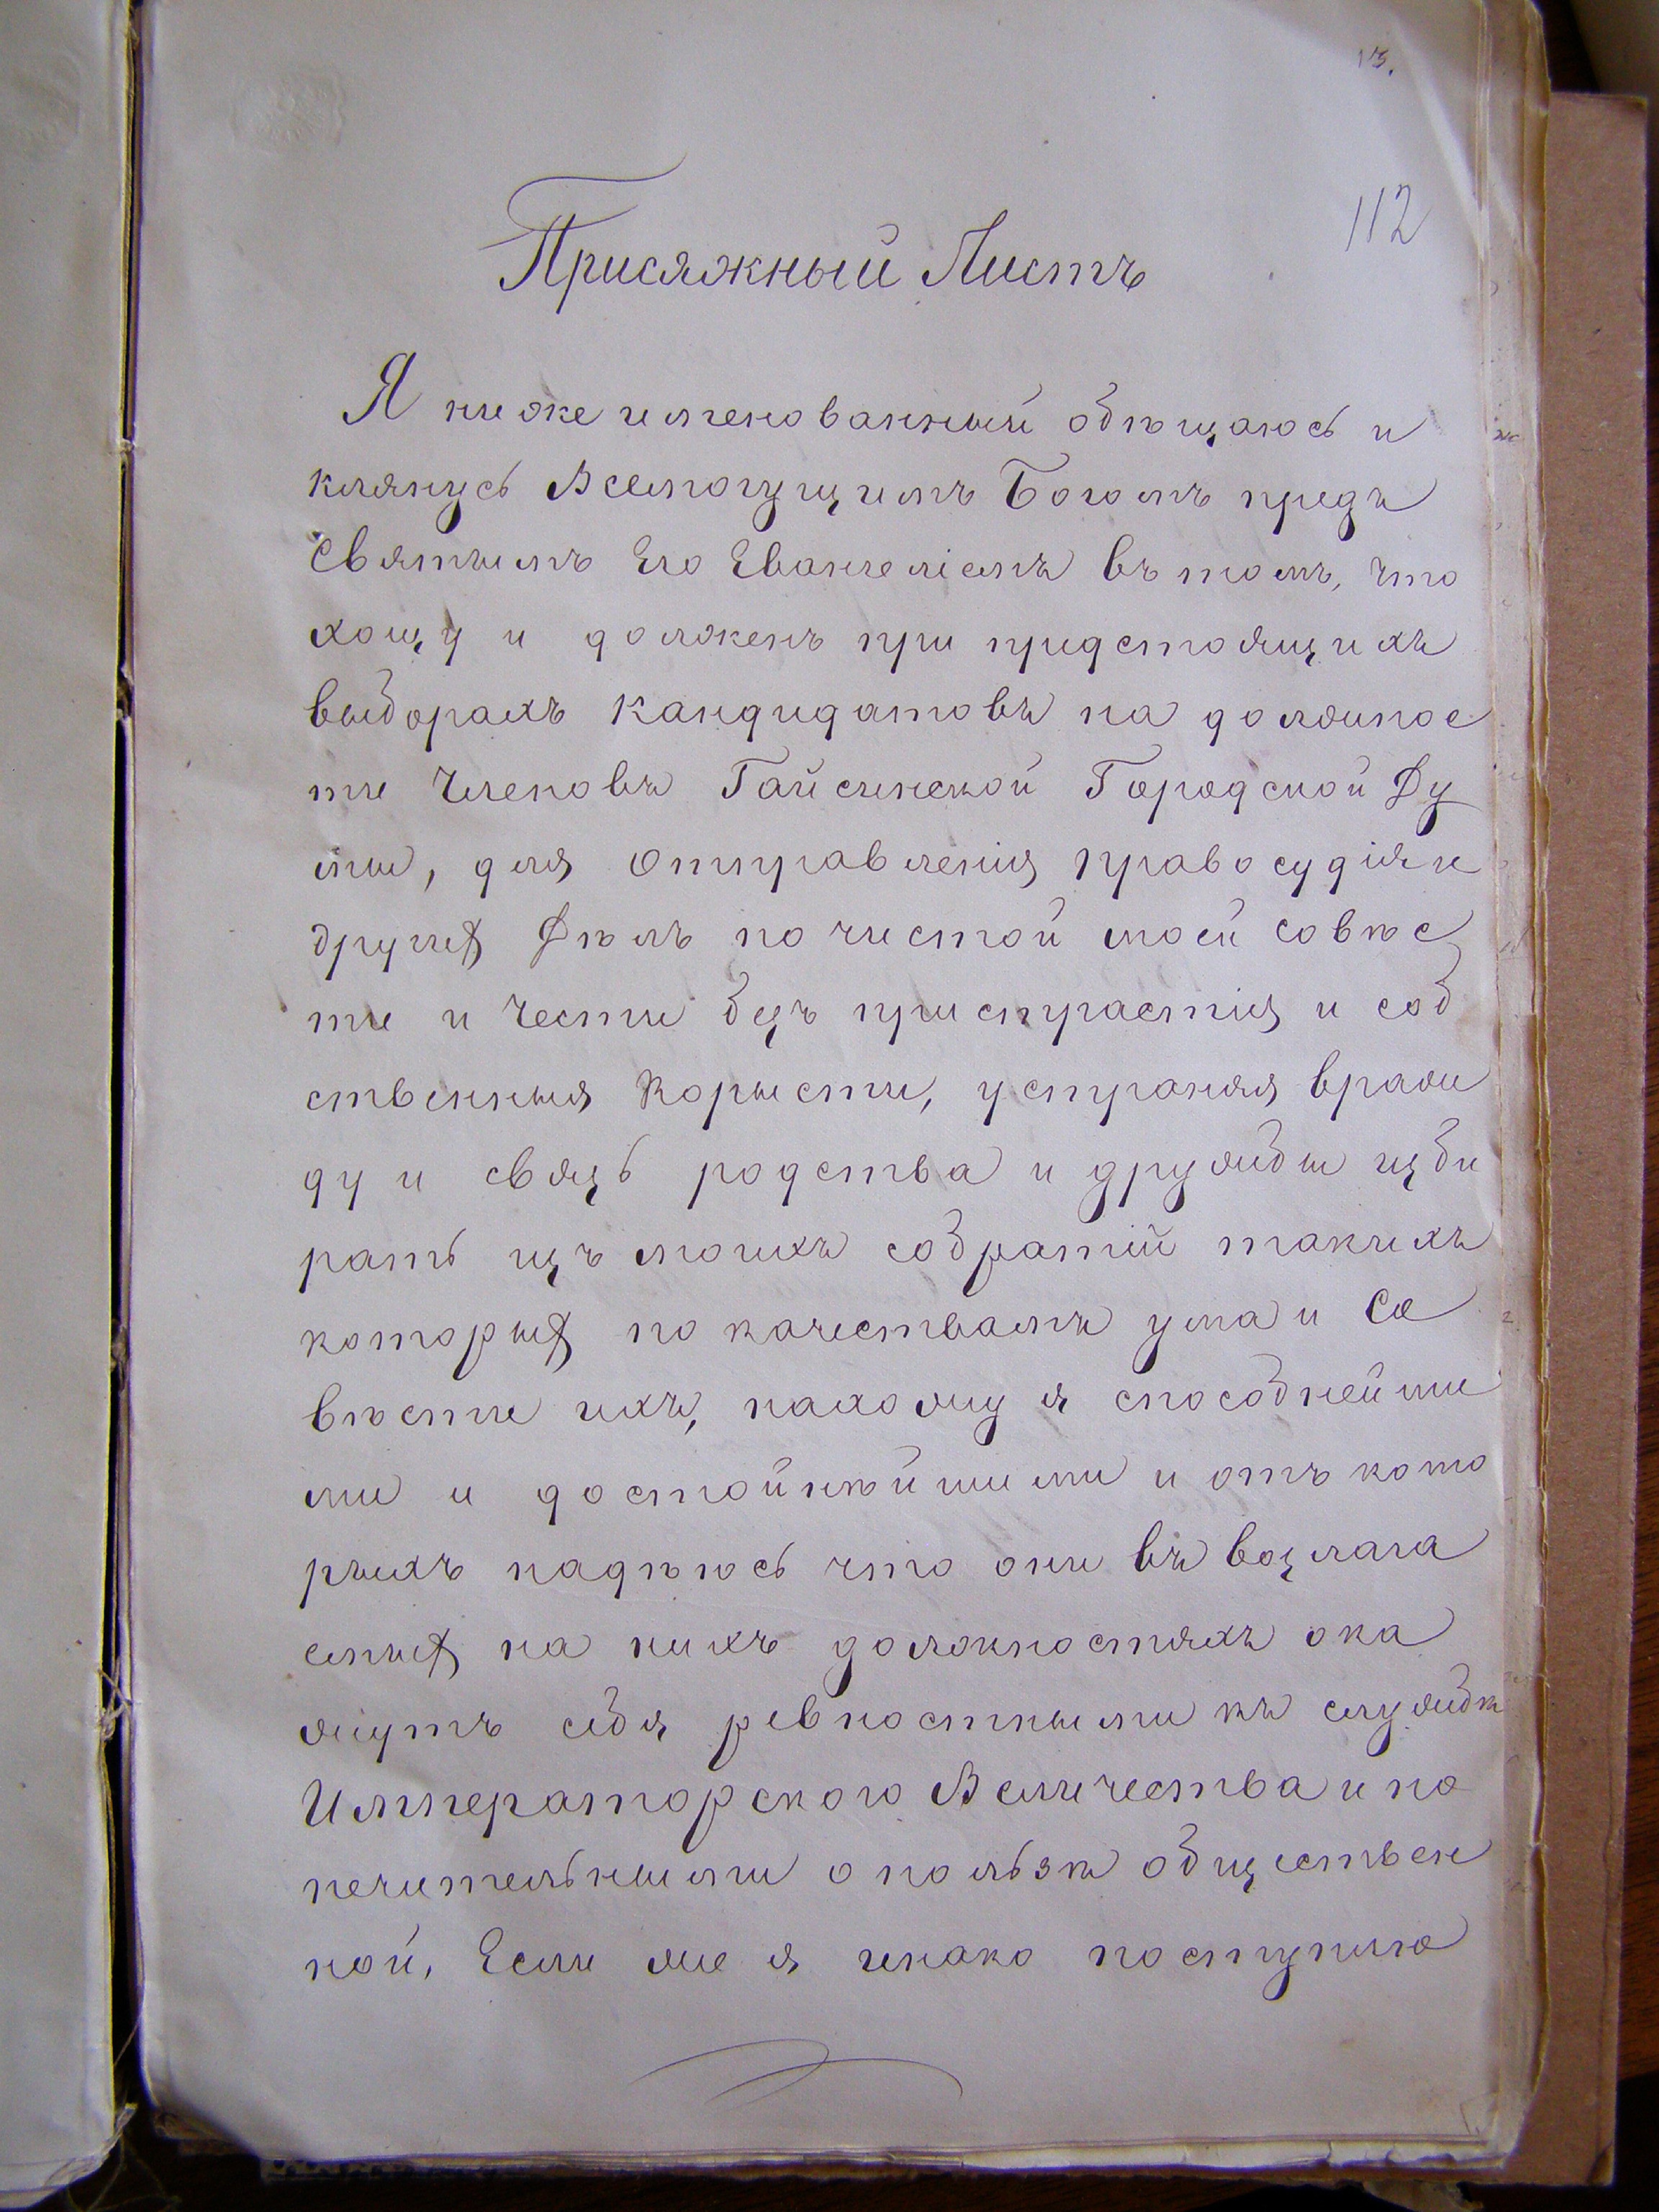 113.
112
Присяжный Листъ
Я нижеименованный обѣщаюсь и
клянусь Всемогущимъ Богомъ предъ
Святымъ Его Евангеліемъ въ томъ, что
хощу и долженъ при предстоящихъ
выборахъ Кандидатовъ на должнос
ти Членовъ Гайсинской Городской Ду
мы, для отправленія правосудія и
другихъ Дѣлъ по чистой моей совѣс
ти и Чести безъ пристрастія и соб
ственныя Корысти, устраняя враж
ду и связь родства и дружбы изби
рать изъ моихъ собратій такихъ
которыхъ по качествамъ ума и Со
вѣсти ихъ, нахожу я способнейши
ми и достойнѣйшими и отъ кото
рыхъ надѣюсь что они въ возлага
емыхъ на нихъ должностяхъ ока
жутъ себя ревностными къ службѣ
Императорского Величества и по
печительными о пользѣ обществен
ной. Если же я инако поступлю